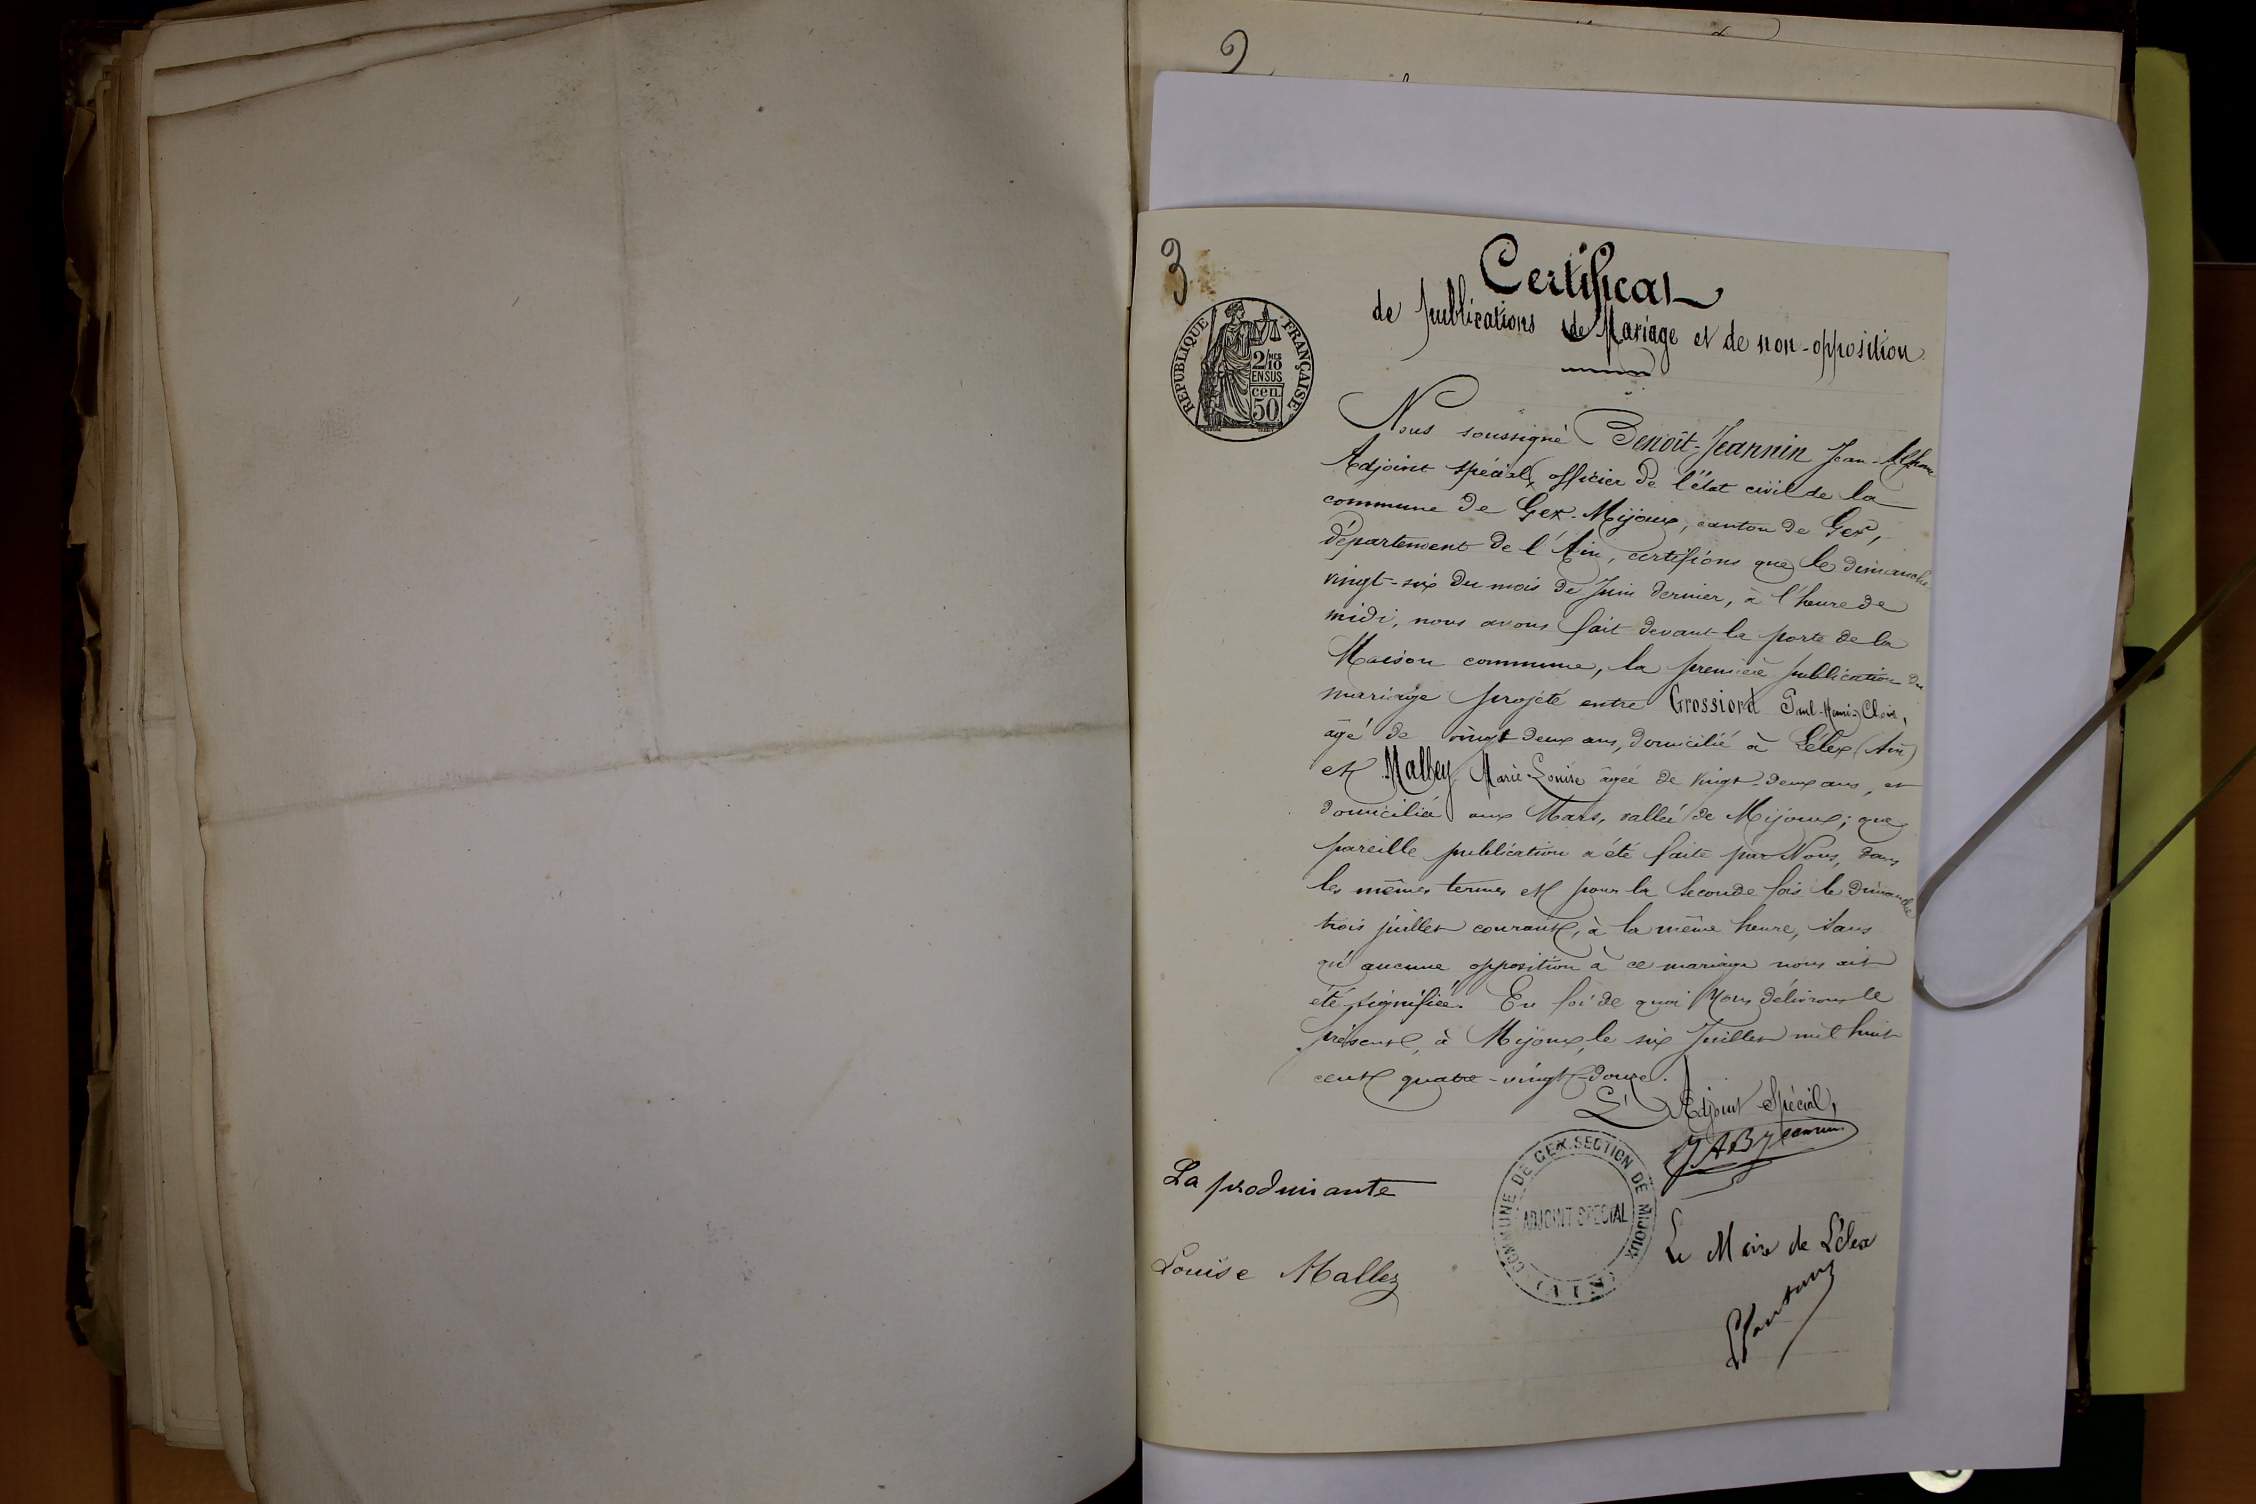 2
3
Certificat
de publications de Mariage et de non-opposition
REPUBLIQUE FRANÇAISE
2/10
EN SUS
cen.
50
Nous soussigné Benoît-Jeannin Jean-Alphonse
Adjoint spécial, officier de l'état civil de la
commune de Gex-Mijoux, canton de Gex,
département de l'Ain, certifions que le dimanche
vingt-six du mois de Juin dernier, à l'heure de
midi, nous avons fait devant la porte de la
Maison commune, la première publication du
mariage projeté entre Grossiord Paul-Henri-
âgé de vingt deux ans, domicilié à Lélex (Ain)
et Malley Marie-Louise âgée de vingt-deux ans, et
domiciliée aux Mars, vallée de Mijoux; que
pareille publication a été faite par Nous, dans
les mêmes termes et pour la seconde fois le Dimanche
trois juillet courant, à la même heure, sans
qu'aucune opposition à ce mariage nous ait
été signifiée. En foi de quoi Nous délivrons le
présent, à Mijoux, le six Juillet mil huit
cent quatre-vingt-douze.
L'Adjoint Spécial,
JABJeannin
COMMUNE DE GEX. SECTION DE MIJOUX
ADJOINT SPECIAL
(AIN)
La produisante
Louise Malley
Le Maire de Lélex